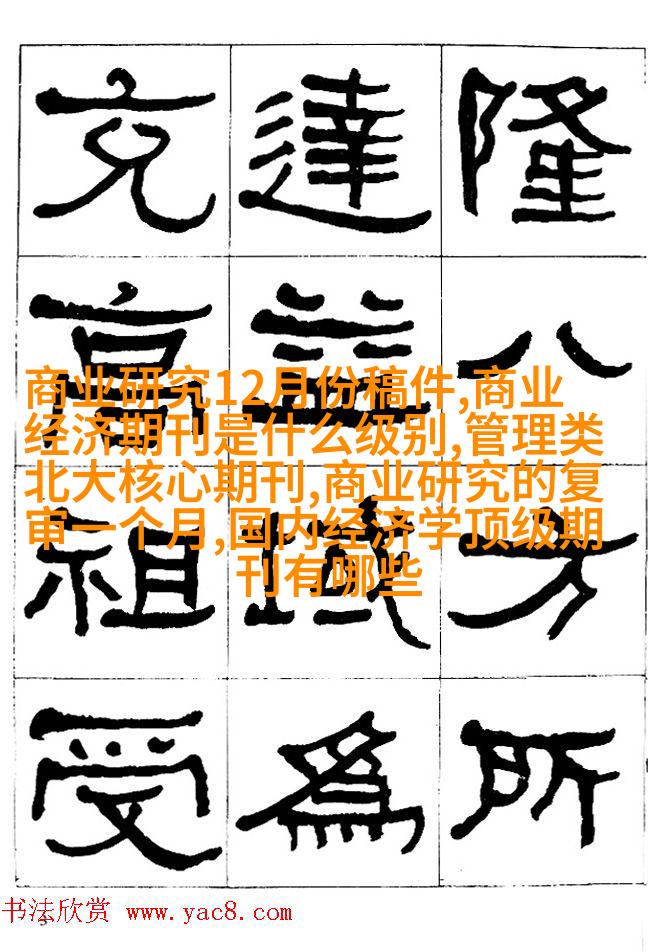 隆八方所
達益域爲
充高祖受
商业研究12月份稿件,商业
经济期刊是什么级别,管理类
北大核心期刊,商业研究的复
审一个月,国内经济学顶级期
刊有哪些
书法欣赏 www.yac8.com
3